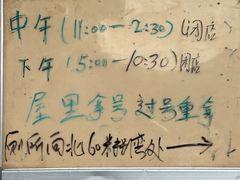 中午(11:00—2:30)闭店
下午(5:00—10:30)闭店
屋里拿号 过号重拿
厕所向北60米转弯处→